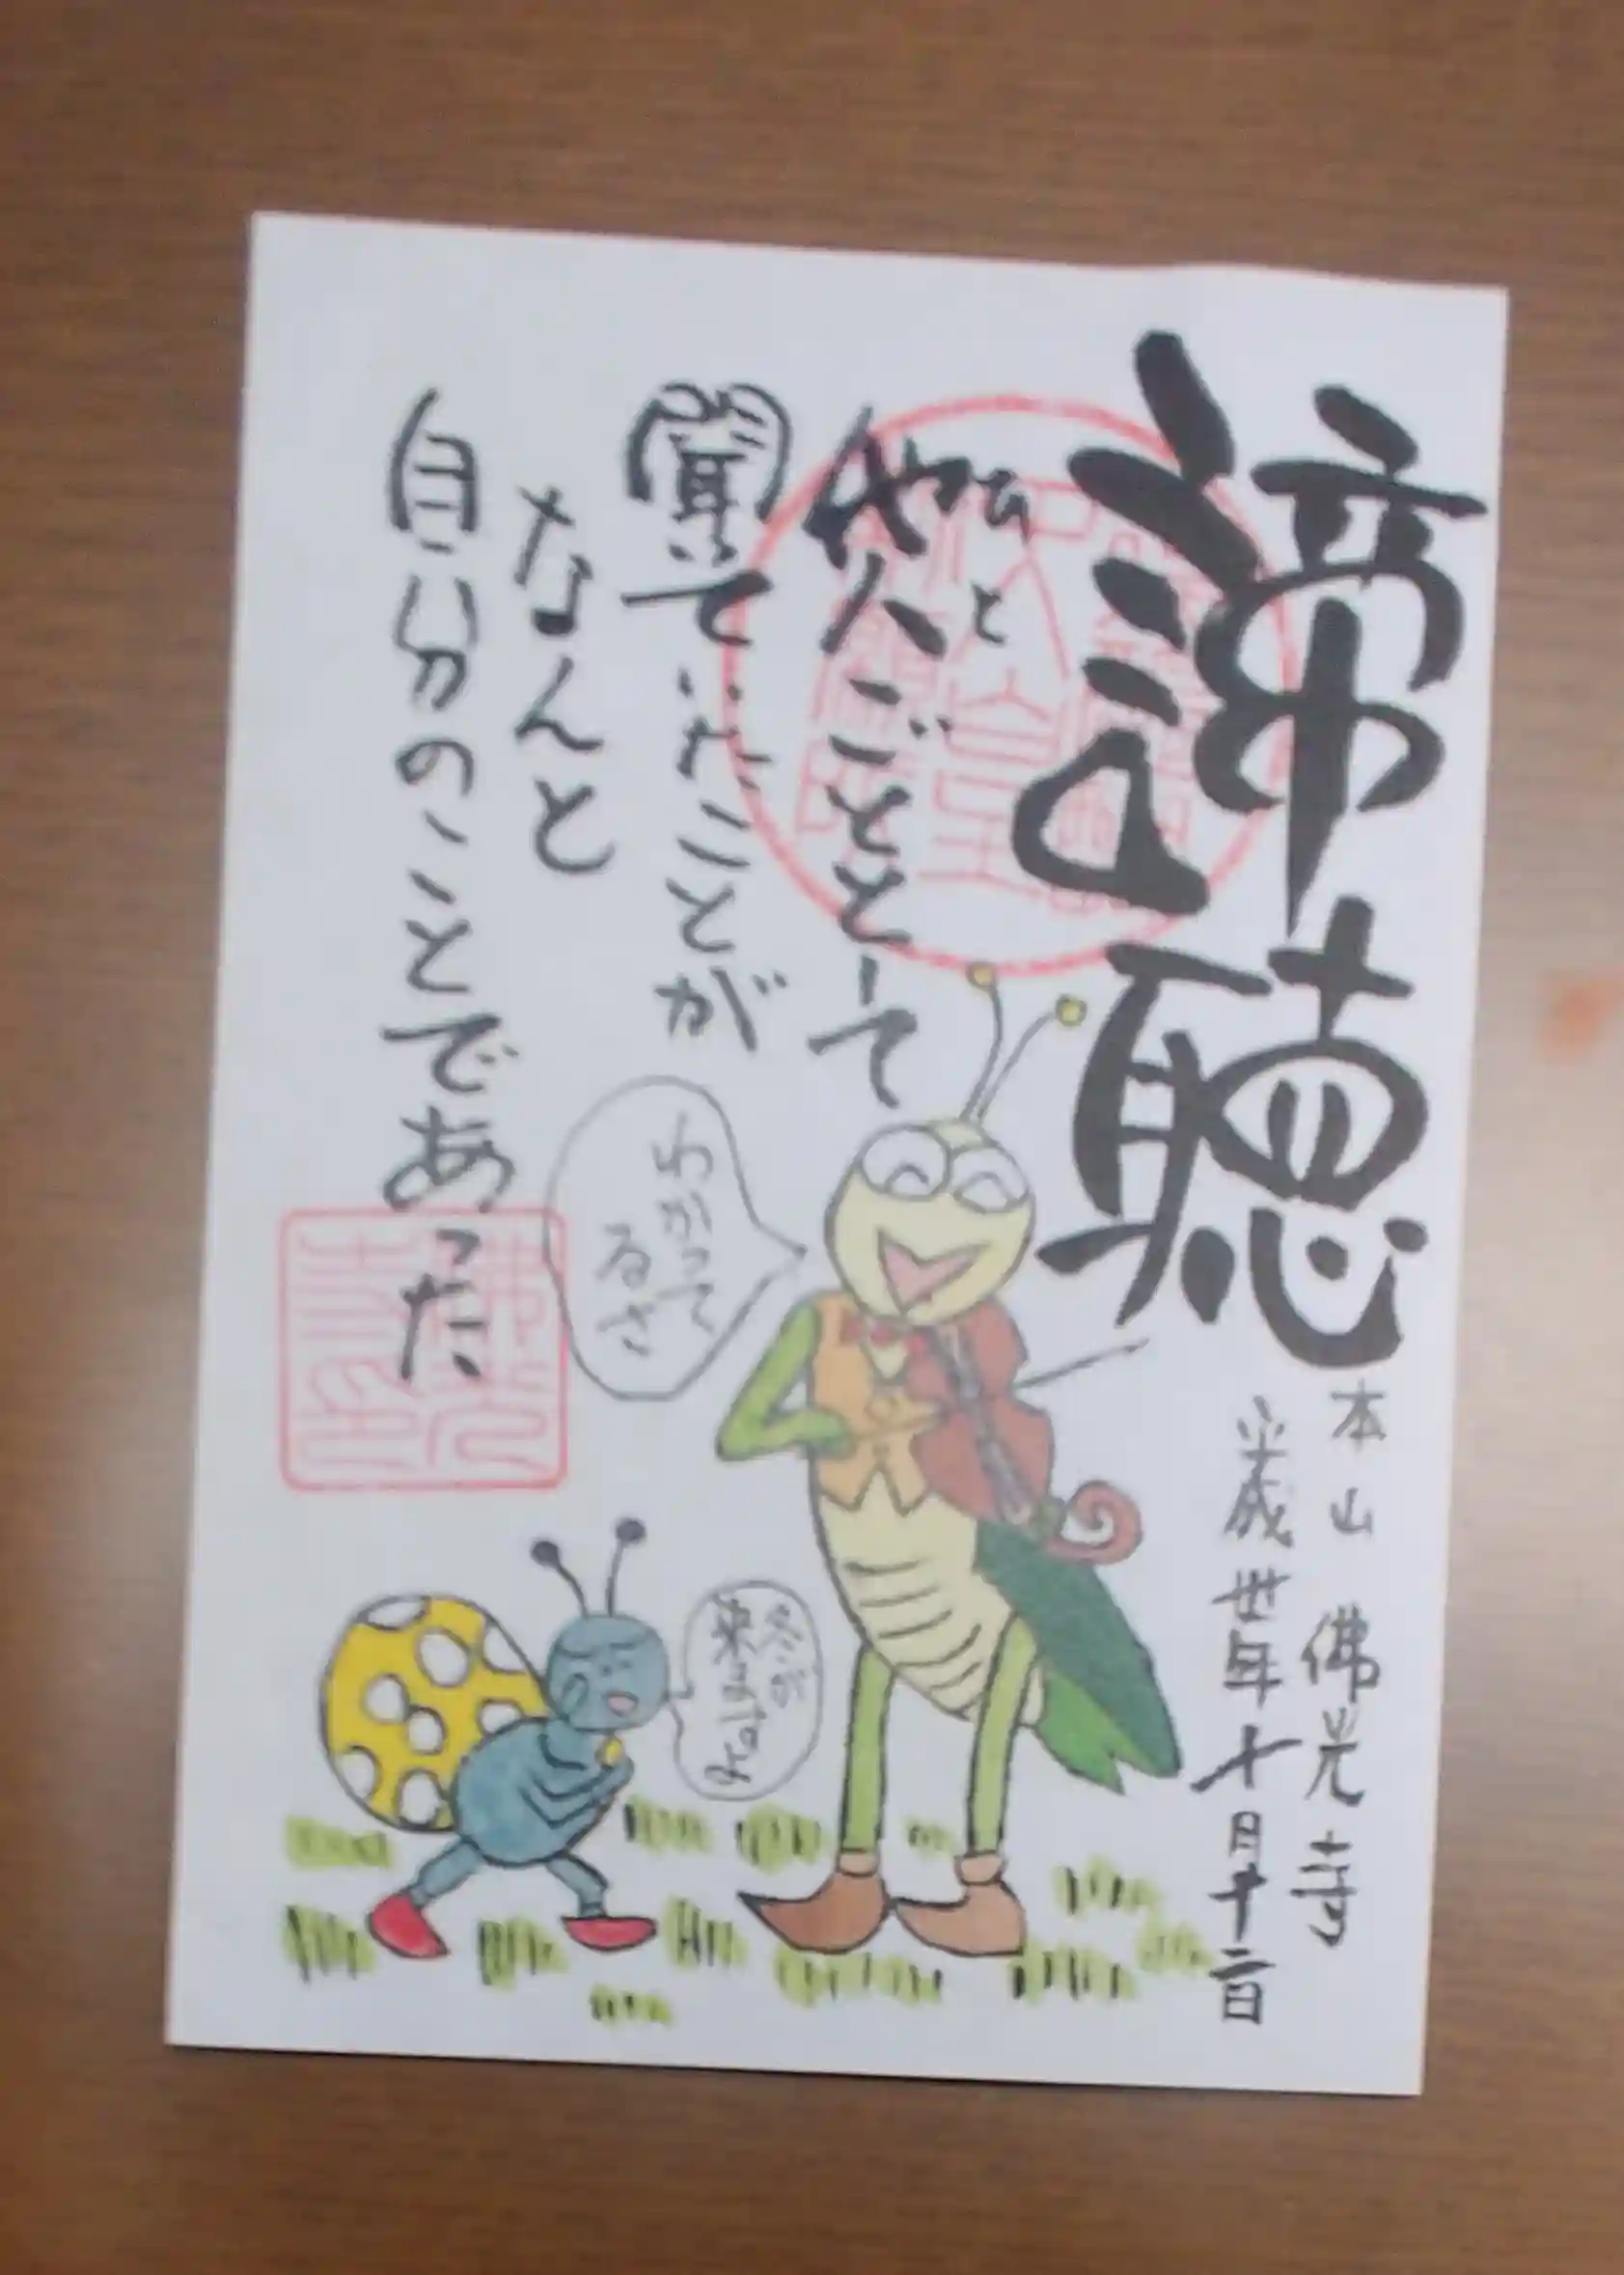 諦聴
本山 佛光寺
平成丗年十月十二日
他人ごととして
ひと
聞いていたことが
なんと
自分のことであった
わかって
るさ
冬が
来ますよ